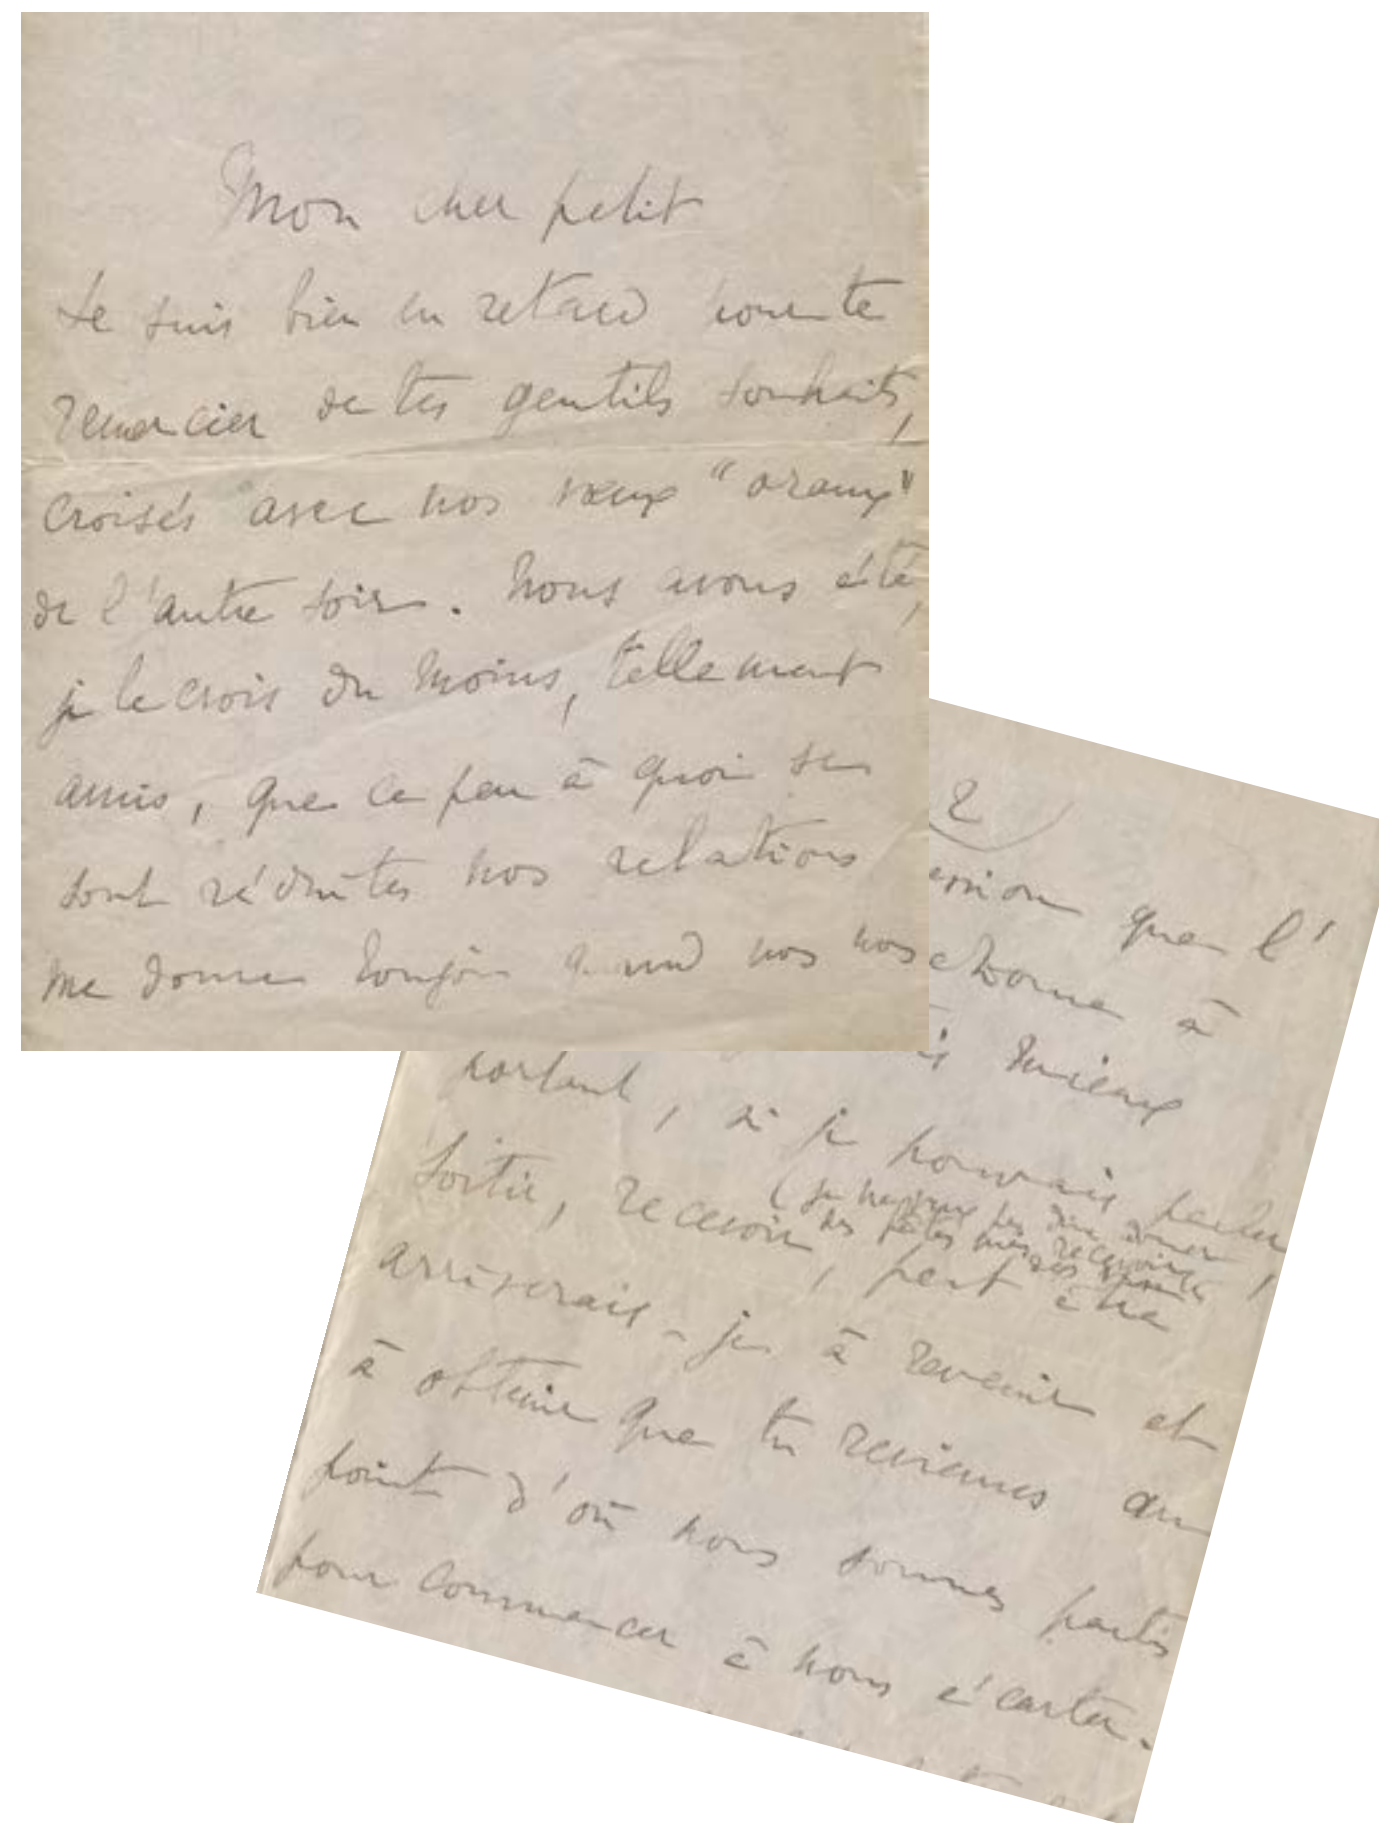 Mon cher petit
Je suis bien en retard pour te
remercier de tes gentils souhaits,
croisés avec nos vœux "oraux"
de l'autre soir. Nous avons été,
je le crois du moins, tellement
amis, que ce peu à quoi se
sont réduites nos relations
me donne toujours quand nos nos
2
ession que l'
chose à
is mieux
portant, si je pouvais parler
sortir, recevoir, peut être
(je ne veux pas dire donner
des fêtes mais recevoir
arriverais-je à revenir et
à obtenir que tu reviennes au
point d'où nous sommes partis
pour commencer à nous écarter.